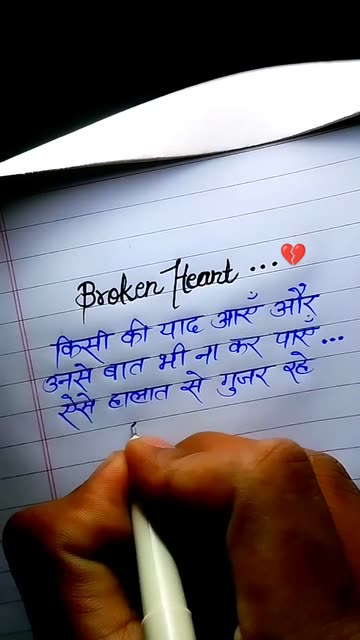 Broken Heart ...💔
किसी की याद आएँ और
उनसे बात भी ना कर पाएँ...
ऐसे हालात से गुजर रहे